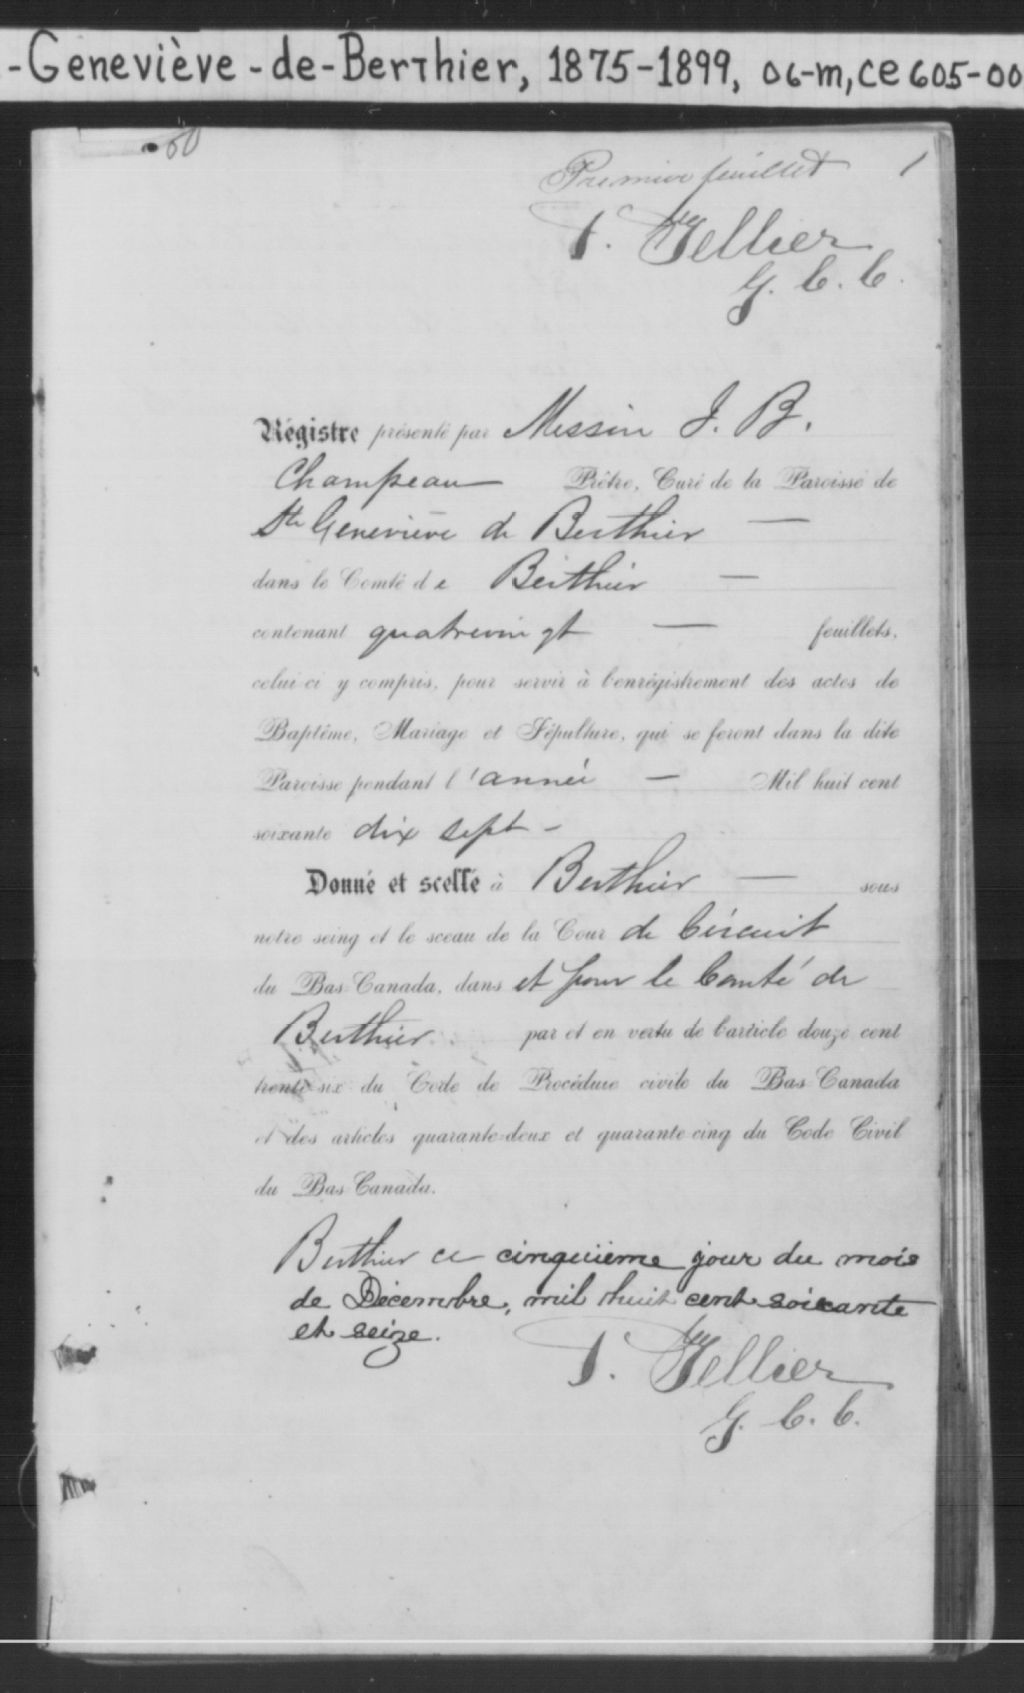 -Geneviève-de-Berthier, 1875-1899, 06-m, ce 605-00
80
Premier feuillet 1
T. Tellier
G. C. C.
Régistre présenté par Messire J. B.
Champeau Prêtre, Curé de la Paroisse de
Ste Geneviève de Berthier —
dans le Comté de Berthier —
contenant quatrevingt — feuillets,
celui-ci y compris, pour servir à l'enrégistrement des actes de
Baptême, Mariage et Sépulture, qui se feront dans la dite
Paroisse pendant l'année — Mil huit cent
soixante dix sept -
Donné et scellé à Berthier — sous
notre seing et le sceau de la Cour de Circuit
du Bas-Canada, dans et pour le Comté de
Berthier par et en vertu de l'article douze cent
trente-six du Code de Procédure civile du Bas-Canada
et des articles quarante-deux et quarante-cinq du Code Civil
du Bas-Canada.
Berthier ce cinquième jour du mois
de Décembre, mil huit cent soixante
et seize.
T. Tellier
G. C. C.